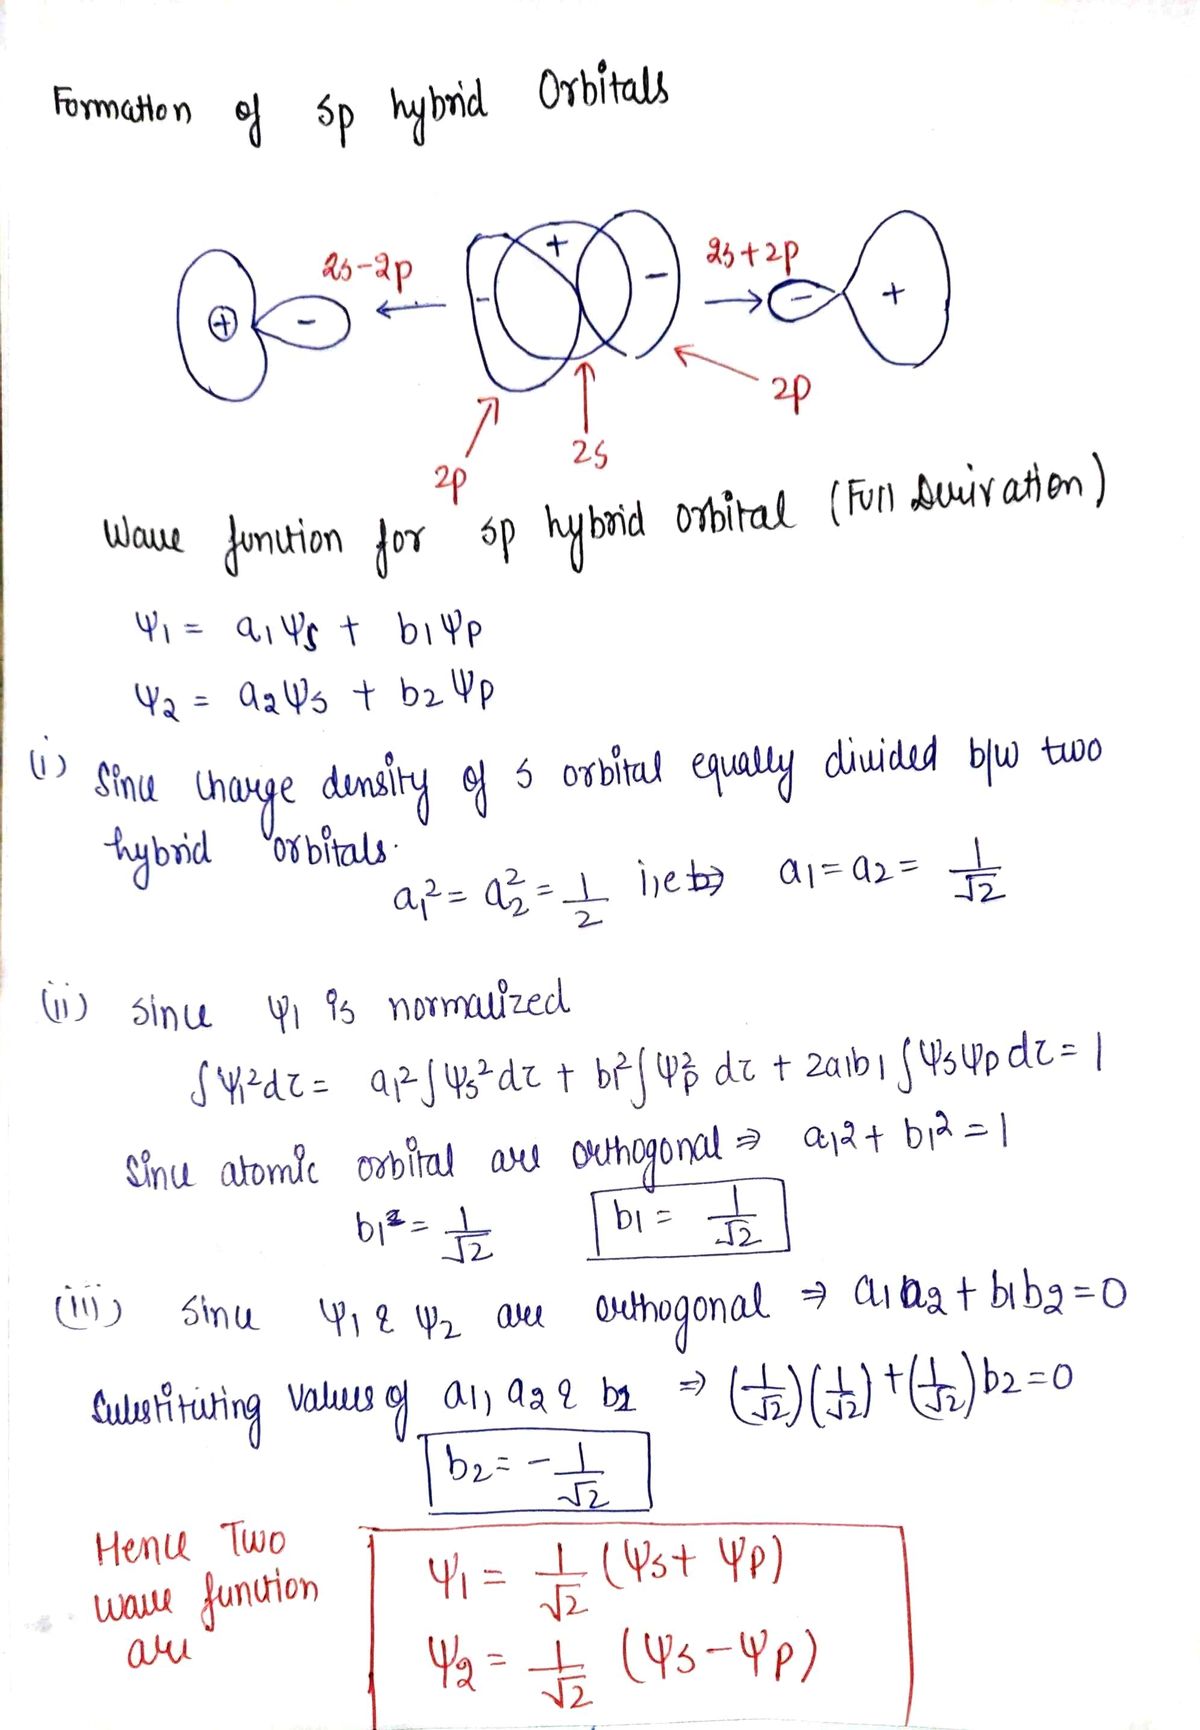 Formation of sp hybrid Orbitals
2s-2p + 2s+2p
⊕ - - - - +
2p
2p 2s
Wave function for sp hybrid orbital (Full Derivation)
ψ1 = a1ψs + b1ψp
ψ2 = a2ψs + b2ψp
(i) Since charge density of s orbital equally divided b/w two
hybrid orbitals.
a1² = a2² = 1/2 i,e ⇒ a1 = a2 = 1/√2
(ii) Since ψ1 is normalized
∫ψ1²dτ = a1²∫ψs²dτ + b1²∫ψp²dτ + 2a1b1∫ψsψpdτ = 1
Since atomic orbital are orthogonal ⇒ a1² + b1² = 1
b1² = 1/√2 b1 = 1/√2
(iii) Since ψ1 & ψ2 are orthogonal ⇒ a1a2 + b1b2 = 0
Substituting values of a1, a2 & b1 ⇒ (1/√2)(1/√2) + (1/√2)b2 = 0
b2 = -1/√2
Hence Two
wave function
are
ψ1 = 1/√2 (ψs + ψp)
ψ2 = 1/√2 (ψs - ψp)